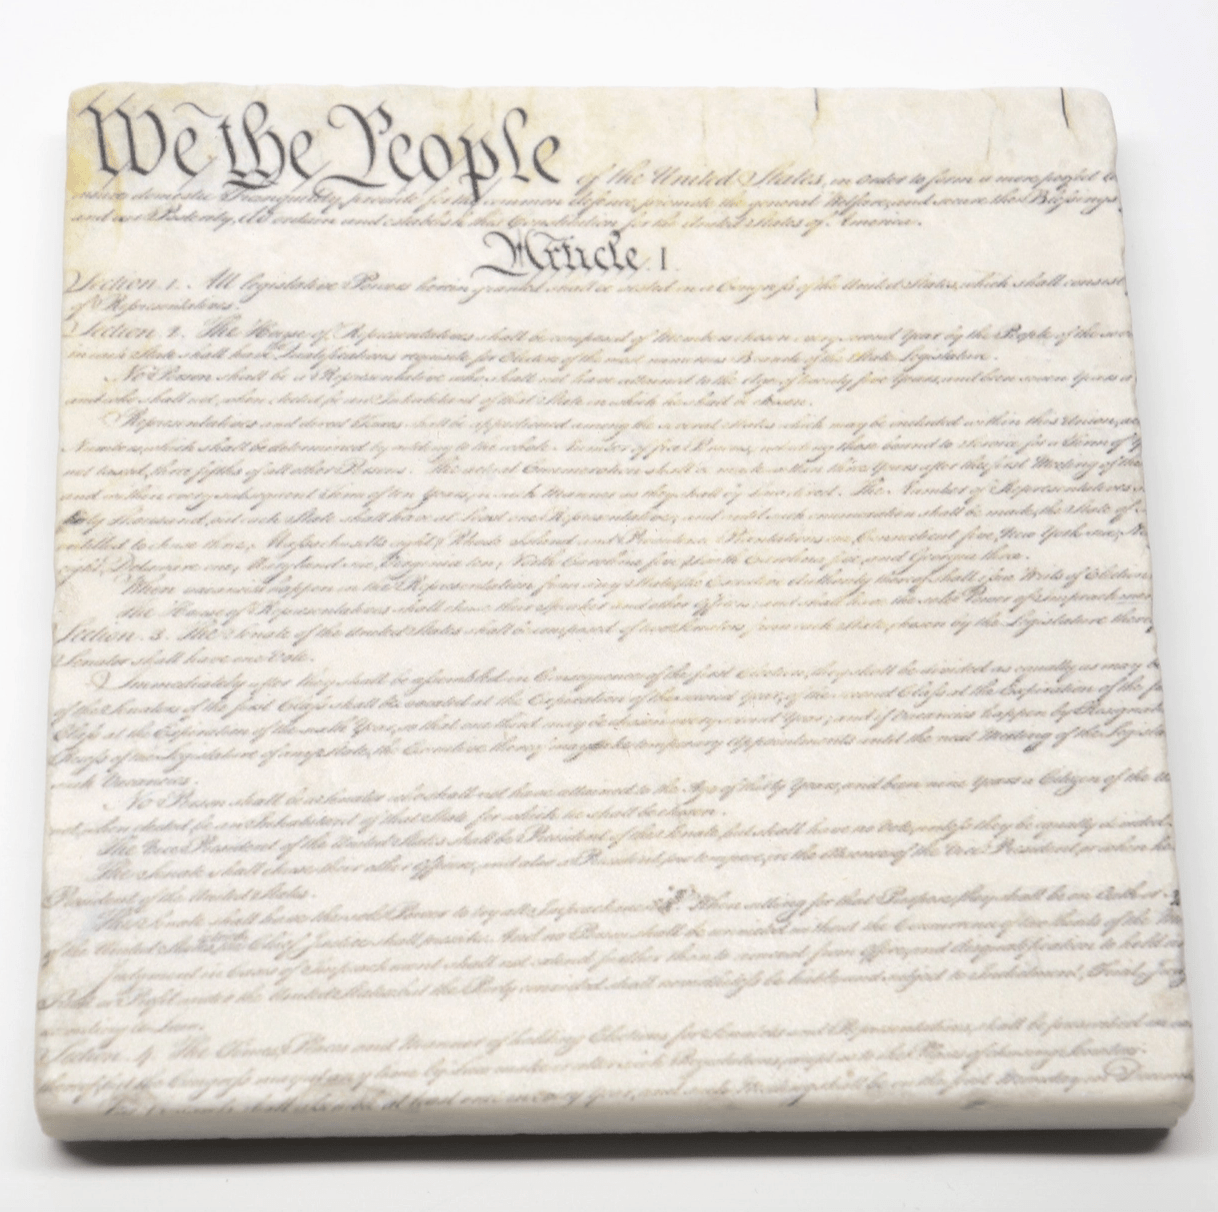 We the People of the United States, in Order to form a more perfect
insure domestic Tranquility, provide for the common defence, promote the general Welfare, and secure the Blessings
and our Posterity, do ordain and establish this Constitution for the United States of America.
Article. I.
Section. 1. All legislative Powers herein granted shall be vested in a Congress of the United States, which shall consist
of Representatives.
Section. 2. The House of Representatives shall be composed of Members chosen every second Year by the People of the
in each State shall have Qualifications requisite for Electors of the most numerous Branch of the State Legislature.
No Person shall be a Representative who shall not have attained to the Age of twenty five Years, and been seven Years a
and who shall not, when elected, be an Inhabitant of that State in which he shall be chosen.
Representatives and direct Taxes shall be apportioned among the several States which may be included within this Union,
Numbers, which shall be determined by adding to the whole Number of free Persons, including those bound to Service for a Term of
not taxed, three fifths of all other Persons. The actual Enumeration shall be made within three Years after the first Meeting of the
and within every subsequent Term of ten Years, in such Manner as they shall by Law direct. The Number of Representatives
thirty Thousand, but each State shall have at Least one Representative; and until such enumeration shall be made, the State of
entitled to chuse three, Massachusetts eight, Rhode Island and Providence Plantations one, Connecticut five, New York six,
eight, Delaware one, Maryland six, Virginia ten, North Carolina five, South Carolina five, and Georgia three.
When vacancies happen in the Representation from any State, the Executive Authority thereof shall issue Writs of Election
The House of Representatives shall chuse their Speaker and other Officers; and shall have the sole Power of Impeachment
Section. 3. The Senate of the United States shall be composed of two Senators from each State, chosen by the Legislature
Senator shall have one Vote.
Immediately after they shall be assembled in Consequence of the first Election, they shall be divided as equally as may be
of the Senators of the first Class shall be vacated at the Expiration of the second Year, of the second Class at the Expiration of the
Class at the Expiration of the sixth Year, so that one third may be chosen every second Year; and if Vacancies happen by
Recess of the Legislature of any State, the Executive thereof may make temporary Appointments until the next Meeting of the
such Vacancies.
No Person shall be a Senator who shall not have attained to the Age of thirty Years, and been nine Years a Citizen of the
not, when elected, be an Inhabitant of that State for which he shall be chosen.
The Vice President of the United States shall be President of the Senate, but shall have no Vote, unless they be equally divided.
The Senate shall chuse their other Officers, and also a President pro tempore, in the Absence of the Vice President, or when he
President of the United States.
The Senate shall have the sole Power to try all Impeachments. When sitting for that Purpose, they shall be on Oath or
of the United States the Chief Justice shall preside: And no Person shall be convicted without the Concurrence of two thirds of the
Judgment in Cases of Impeachment shall not extend further than to removal from Office, and disqualification to hold
Trust or Profit under the United States: but the Party convicted shall nevertheless be liable and subject to Indictment, Trial,
according to Law.
Section. 4. The Times, Places and Manner of holding Elections for Senators and Representatives, shall be prescribed in
thereof; but the Congress may at any time by Law make or alter such Regulations, except as to the Places of chusing Senators.
The Congress shall assemble at least once in every Year, and such Meeting shall be on the first Monday in